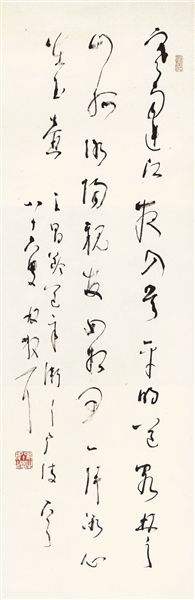 寒雨連江夜入吳平明送客楚
山孤洛陽親友如相問一片冰心
在玉壺 王昌齡送辛漸
八十六叟林散耳